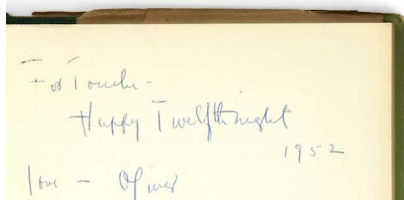 For Touche -
Happy Twelfthnight
1952
love - Oliver